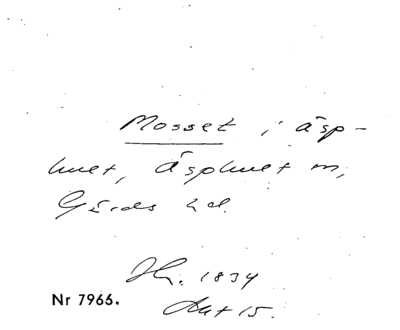 Mosset i äsp-
huet, Äsphuet m,
Gärds hd.
Hr. 1834
Akt 15.
Nr 7966.